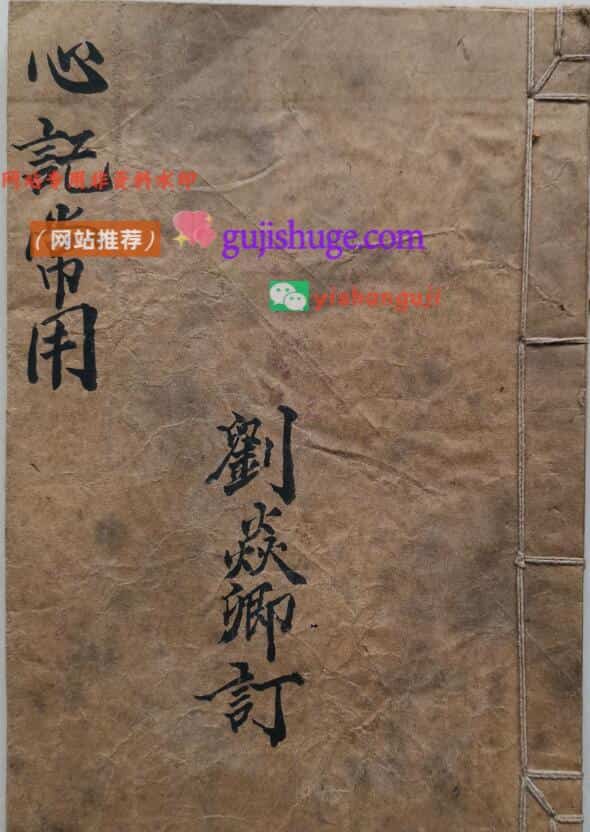 心記常用
网站专用作资料水印
（网站推荐） gujishuge.com
yishanguji
劉焱卿訂